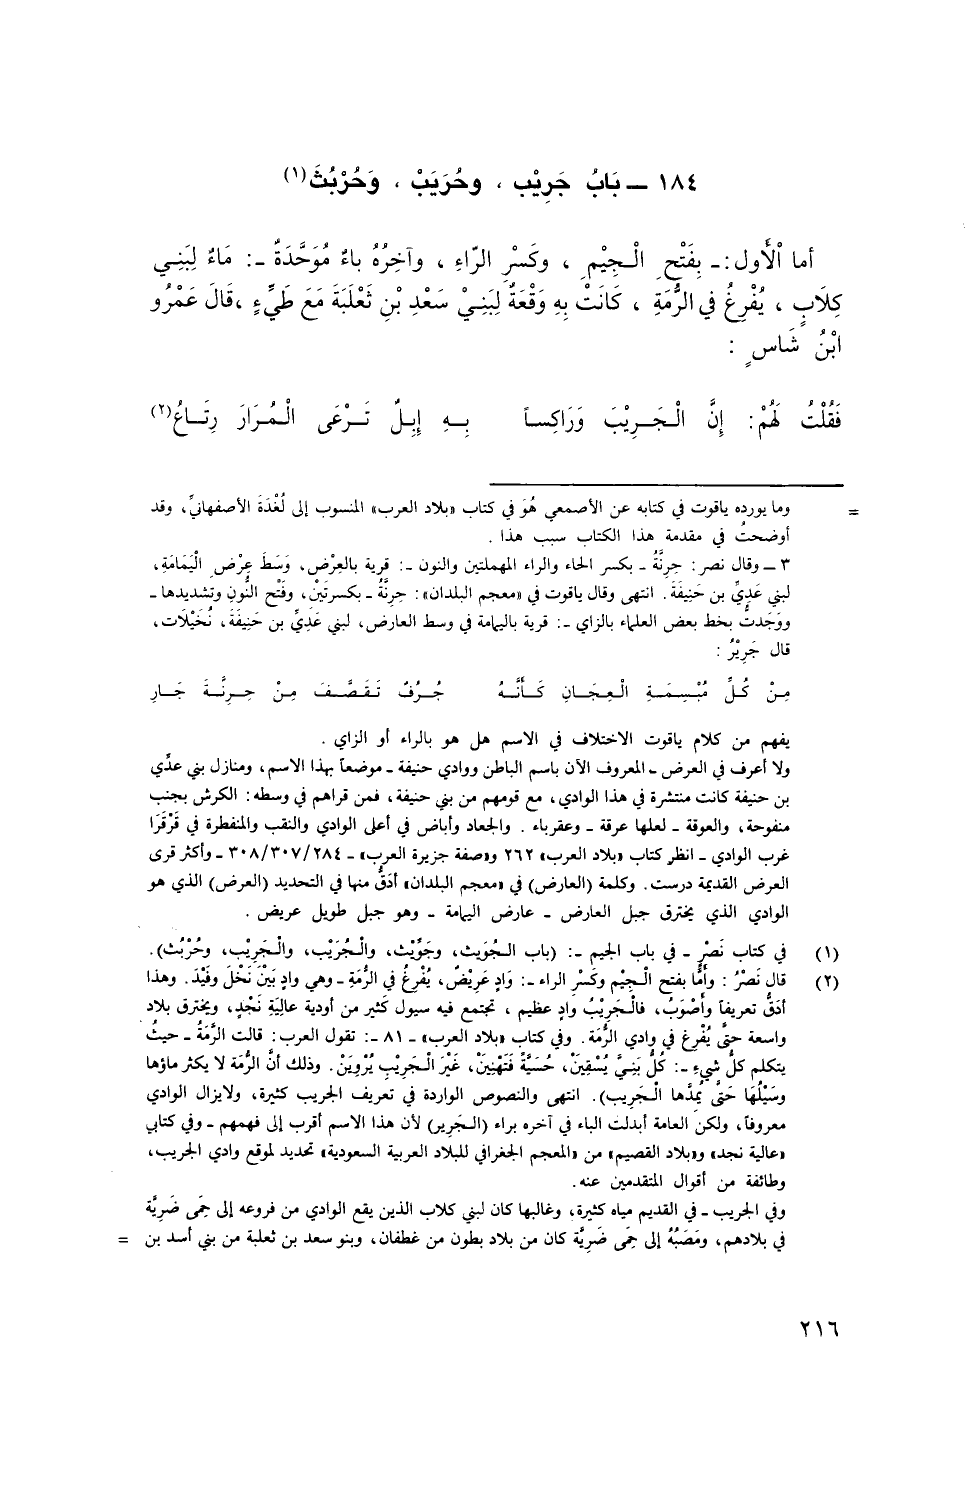 ١٨٤ ــ بَابُ جَرِيْبِ ، وحُرَيَبْ ، وَحُرْبُثَ(١)
أما اْلأَول :ـ بِفَتْحِ الْجِيْمِ ، وكَسْرِ الرّاءِ ، وآخِرُهُ باءٌ مُوَحَّدَةٌ ـ: مَاءٌ لِبَنِي
كِلَابٍ ، يُفْرِغُ في الرُّمَةِ ، كَانَتْ بِهِ وَقْعَةٌ لِبَنِيْ سَعْدِ بْنِ ثَعْلَبَةَ مَعَ طَيِّءٍ ،قَالَ عَمْرُو
ابْنُ شَاسٍ :
فَقُلْتُ لَهُمْ: إِنَّ الْجَرِيْبَ وَرَاكِساً بِهِ إِبِلٌ تَرْعَى الْمُرَارَ رِتَاعُ(٢)
= وما يورده ياقوت في كتابه عن الأصمعي هُوَ في كتاب «بلاد العرب» المنسوب إلى لُغْدَةَ الأصفهانيِّ، وقد
أوضحتُ في مقدمة هذا الكتاب سبب هذا .
٣ ــ وقال نصر: حِرِنَّةُ ـ بكسر الحاء والراء المهملتين والنون ـ: قرية بالعِرْض، وَسَطَ عِرْضِ الْيَمَامَةِ،
لبني عَدِيِّ بن حَنِيفَةَ. انتهى وقال ياقوت في «معجم البلدان»: حِرِنَّةُ ـ بكسرتَيْنِ، وفَتْح النُّونِ وتشديدها ـ
ووَجَدتُ بخط بعض العلماء بالزاي ـ: قرية باليمامة في وسط العارض، لبني عَدِيِّ بن حَنِيفَةَ، نُخَيْلَات،
قال جَرِيْرُ :
مِنْ كُلِّ مُبْسِمَةِ الْعِجَانِ كَأَنَّهُ جُرُفٌ تَقَصَّفَ مِنْ حِرِنَّةَ جَارِ
يفهم من كلام ياقوت الاختلاف في الاسم هل هو بالراء أو الزاي .
ولا أعرف في العرض ـ المعروف الآن باسم الباطن ووادي حنيفة ـ موضعاً بهذا الاسم، ومنازل بني عدّي
بن حنيفة كانت منتشرة في هذا الوادي، مع قومهم من بني حنيفة، فمن قراهم في وسطه: الكرش بجنب
منفوحة، والعوقة ـ لعلها عرقة ـ وعقرباء . والجعاد وأباض في أعلى الوادي والنقب والمنفطرة في قَرْقَرَا
غرب الوادي ـ انظر كتاب «بلاد العرب» ٢٦٢ و«صفة جزيرة العرب» ـ ٣٠٨/٣٠٧/٢٨٤ ـ وأكثر قرى
العرض القديمة درست. وكلمة (العارض) في «معجم البلدان» أدَقُّ منها في التحديد (العرض) الذي هو
الوادي الذي يخترق جبل العارض ـ عارض اليمامة ـ وهو جبل طويل عريض .
(١) في كتاب نَصْرٍ ـ في باب الجيم ـ: (باب الْجُوَيث، وجَوِّيْث، والْجُرَيْب، والْجَرِيْب، وحُرْبُث).
(٢) قال نَصْرُ : وأَمَّا بفتح الْجِيْم وكَسْرِ الراء ـ: وَادٍ عَرِيْضٌ، يُفْرِغُ في الرُّمَةِ ـ وهي وادٍ بَيْنَ نَخْلَ وفَيْدَ. وهذا
أدَقُّ تعريفاً وأَصْوَبُ، فالْجَرِيْبُ وادٍ عظيم ، تجتمع فيه سيول كَثير من أودية عالِيَةِ نَجْدٍ، ويخترق بلاد
واسعة حتَّى يُفْرِغ في وادي الرُّمَة. وفي كتاب «بلاد العرب» ـ ٨١ ـ: تقول العرب: قالت الرَّمَةُ ـ حيثُ
يتكلم كلُّ شيءٍ ـ: كُلُّ بَنِيَّ يُسْقِيَنْ، حُسَيَّةً فَتَهْنِيَنْ، غَيْرَ الْجَرِيْبِ يُرْوِيَنْ. وذلك أنَّ الرُّمَة لا يكثر ماؤها
وسَيْلُهَا حَتَّى يَمِدَّها الْجَرِيب). انتهى والنصوص الواردة في تعريف الجريب كثيرة، ولايزال الوادي
معروفاً، ولكن العامة أبدلت الباء في آخره براء (الْجَرِير) لأن هذا الاسم أقرب إلى فهمهم ـ وفي كتابي
«عالية نجد» و«بلاد القصيم» من «المعجم الجغرافي للبلاد العربية السعودية» تحديد لموقع وادي الجريب،
وطائفة من أقوال المتقدمين عنه.
وفي الجريب ـ في القديم مياه كثيرة، وغالبها كان لبني كلاب الذين يقع الوادي من فروعه إلى حِمَى ضَرِيَّة
في بلادهم، ومَصَبُّهُ إلى حِمَى ضَرِيَّة كان من بلاد بطون من غطفان، وبنو سعد بن ثعلبة من بني أسد بن =
٢١٦